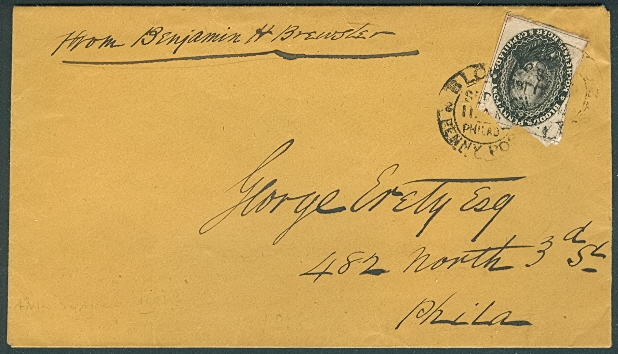 From Benjamin H Brewster
BLOOD'S
PENNY POST
PHILAD
George Erety Esq
482 North 3d St
Phila